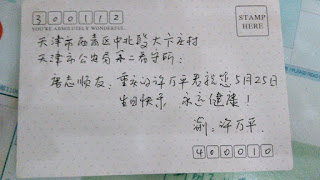 300112
YOU'RE ABSOLUTELY WONDERFUL
STAMP
HERE
天津市西青区中北段大卞庄村
天津市公安局第二看守所：
唐志顺友：重庆的许万平君祝您5月25日
生日快乐，永远健康！
渝：许万平.
400010